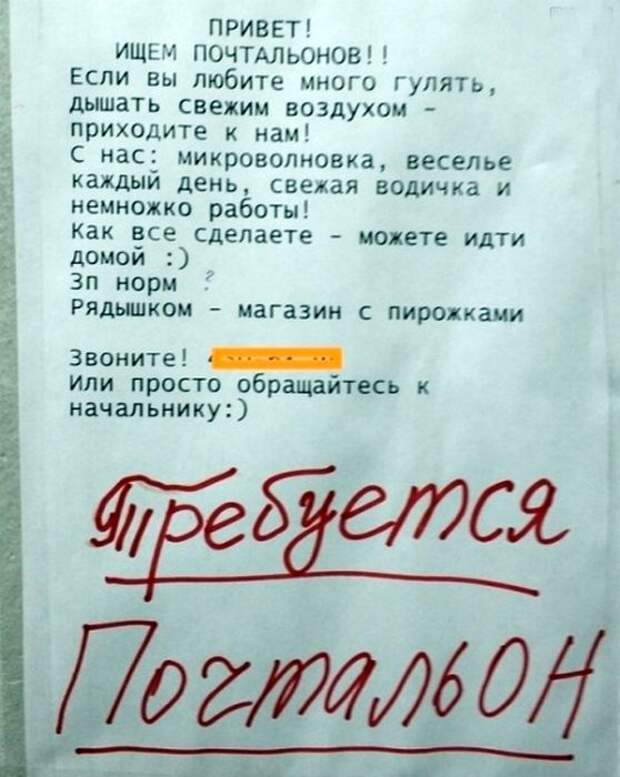 ПРИВЕТ!
ИЩЕМ ПОЧТАЛЬОНОВ!!
Если вы любите много гулять,
дышать свежим воздухом -
приходите к нам!
С нас: микроволновка, веселье
каждый день, свежая водичка и
немножко работы!
Как все сделаете - можете идти
домой :)
Зп норм ?
Рядышком - магазин с пирожками
Звоните!
Или просто обращайтесь к
начальнику:)
Требуется
ПочтальОН